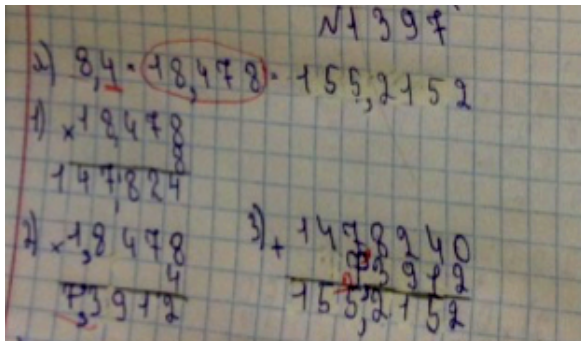 N1397
2) 8,4 · 18,478 = 155,2152
1) ×18,478
8
147,824
2) ×1,8478
4
7,3912
3) + 1478240
73912
155,2152